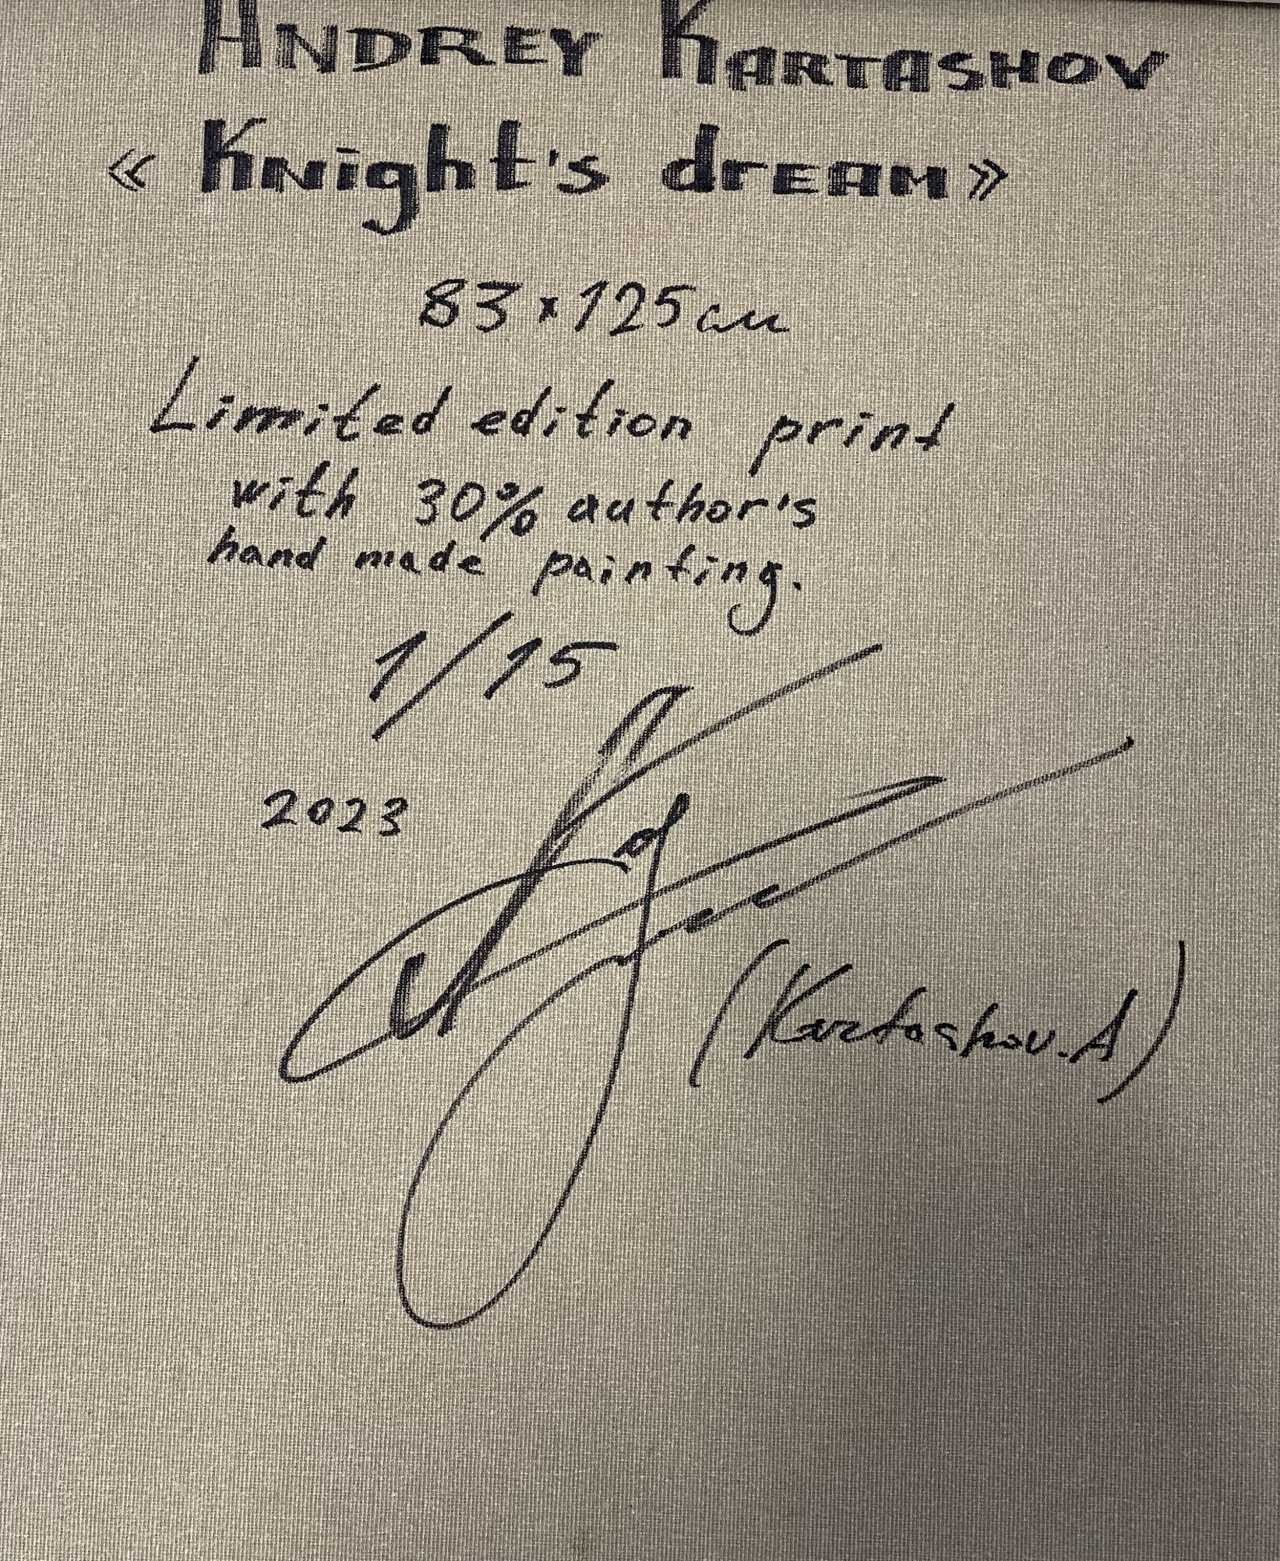 ANDREY KARTASHOV
« Knight's dream »
83×125см
Limited edition print
with 30% author's
hand made painting.
1/15
2023
(Kartashov.A)